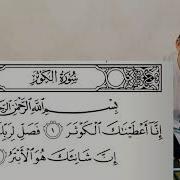 سُورَةُ الْكَوْثَرِ
بِسْمِ اللَّهِ الرَّحْمَٰنِ الرَّحِيمِ
إِنَّا أَعْطَيْنَاكَ الْكَوْثَرَ ١ فَصَلِّ لِرَبِّكَ
إِنَّ شَانِئَكَ هُوَ الْأَبْتَرُ